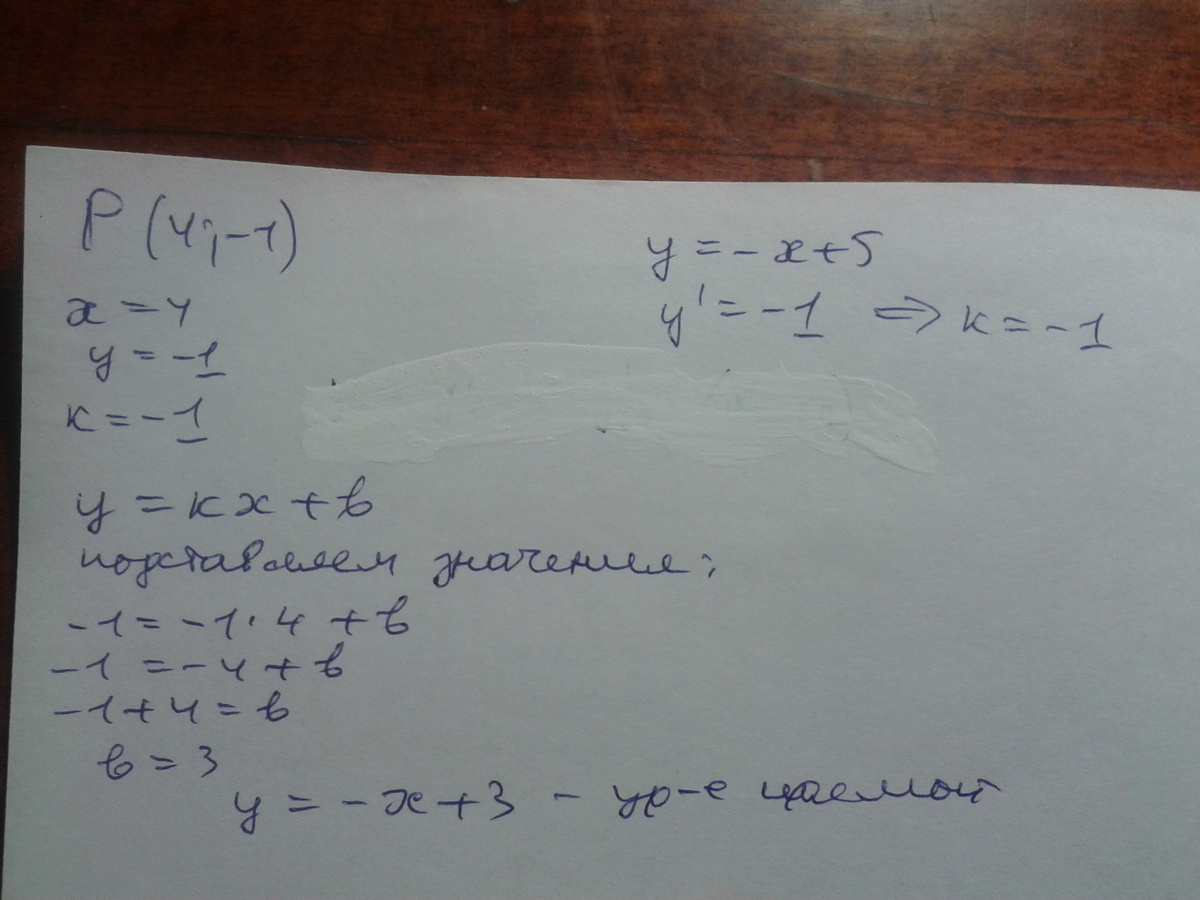 P (4; -1)
x = 4
y = -1
к = -1
y = -x + 5
y' = -1 => к = -1
y = кx + b
подставляем значения:
-1 = -1 · 4 + b
-1 = -4 + b
-1 + 4 = b
b = 3
y = -x + 3 - ур-е